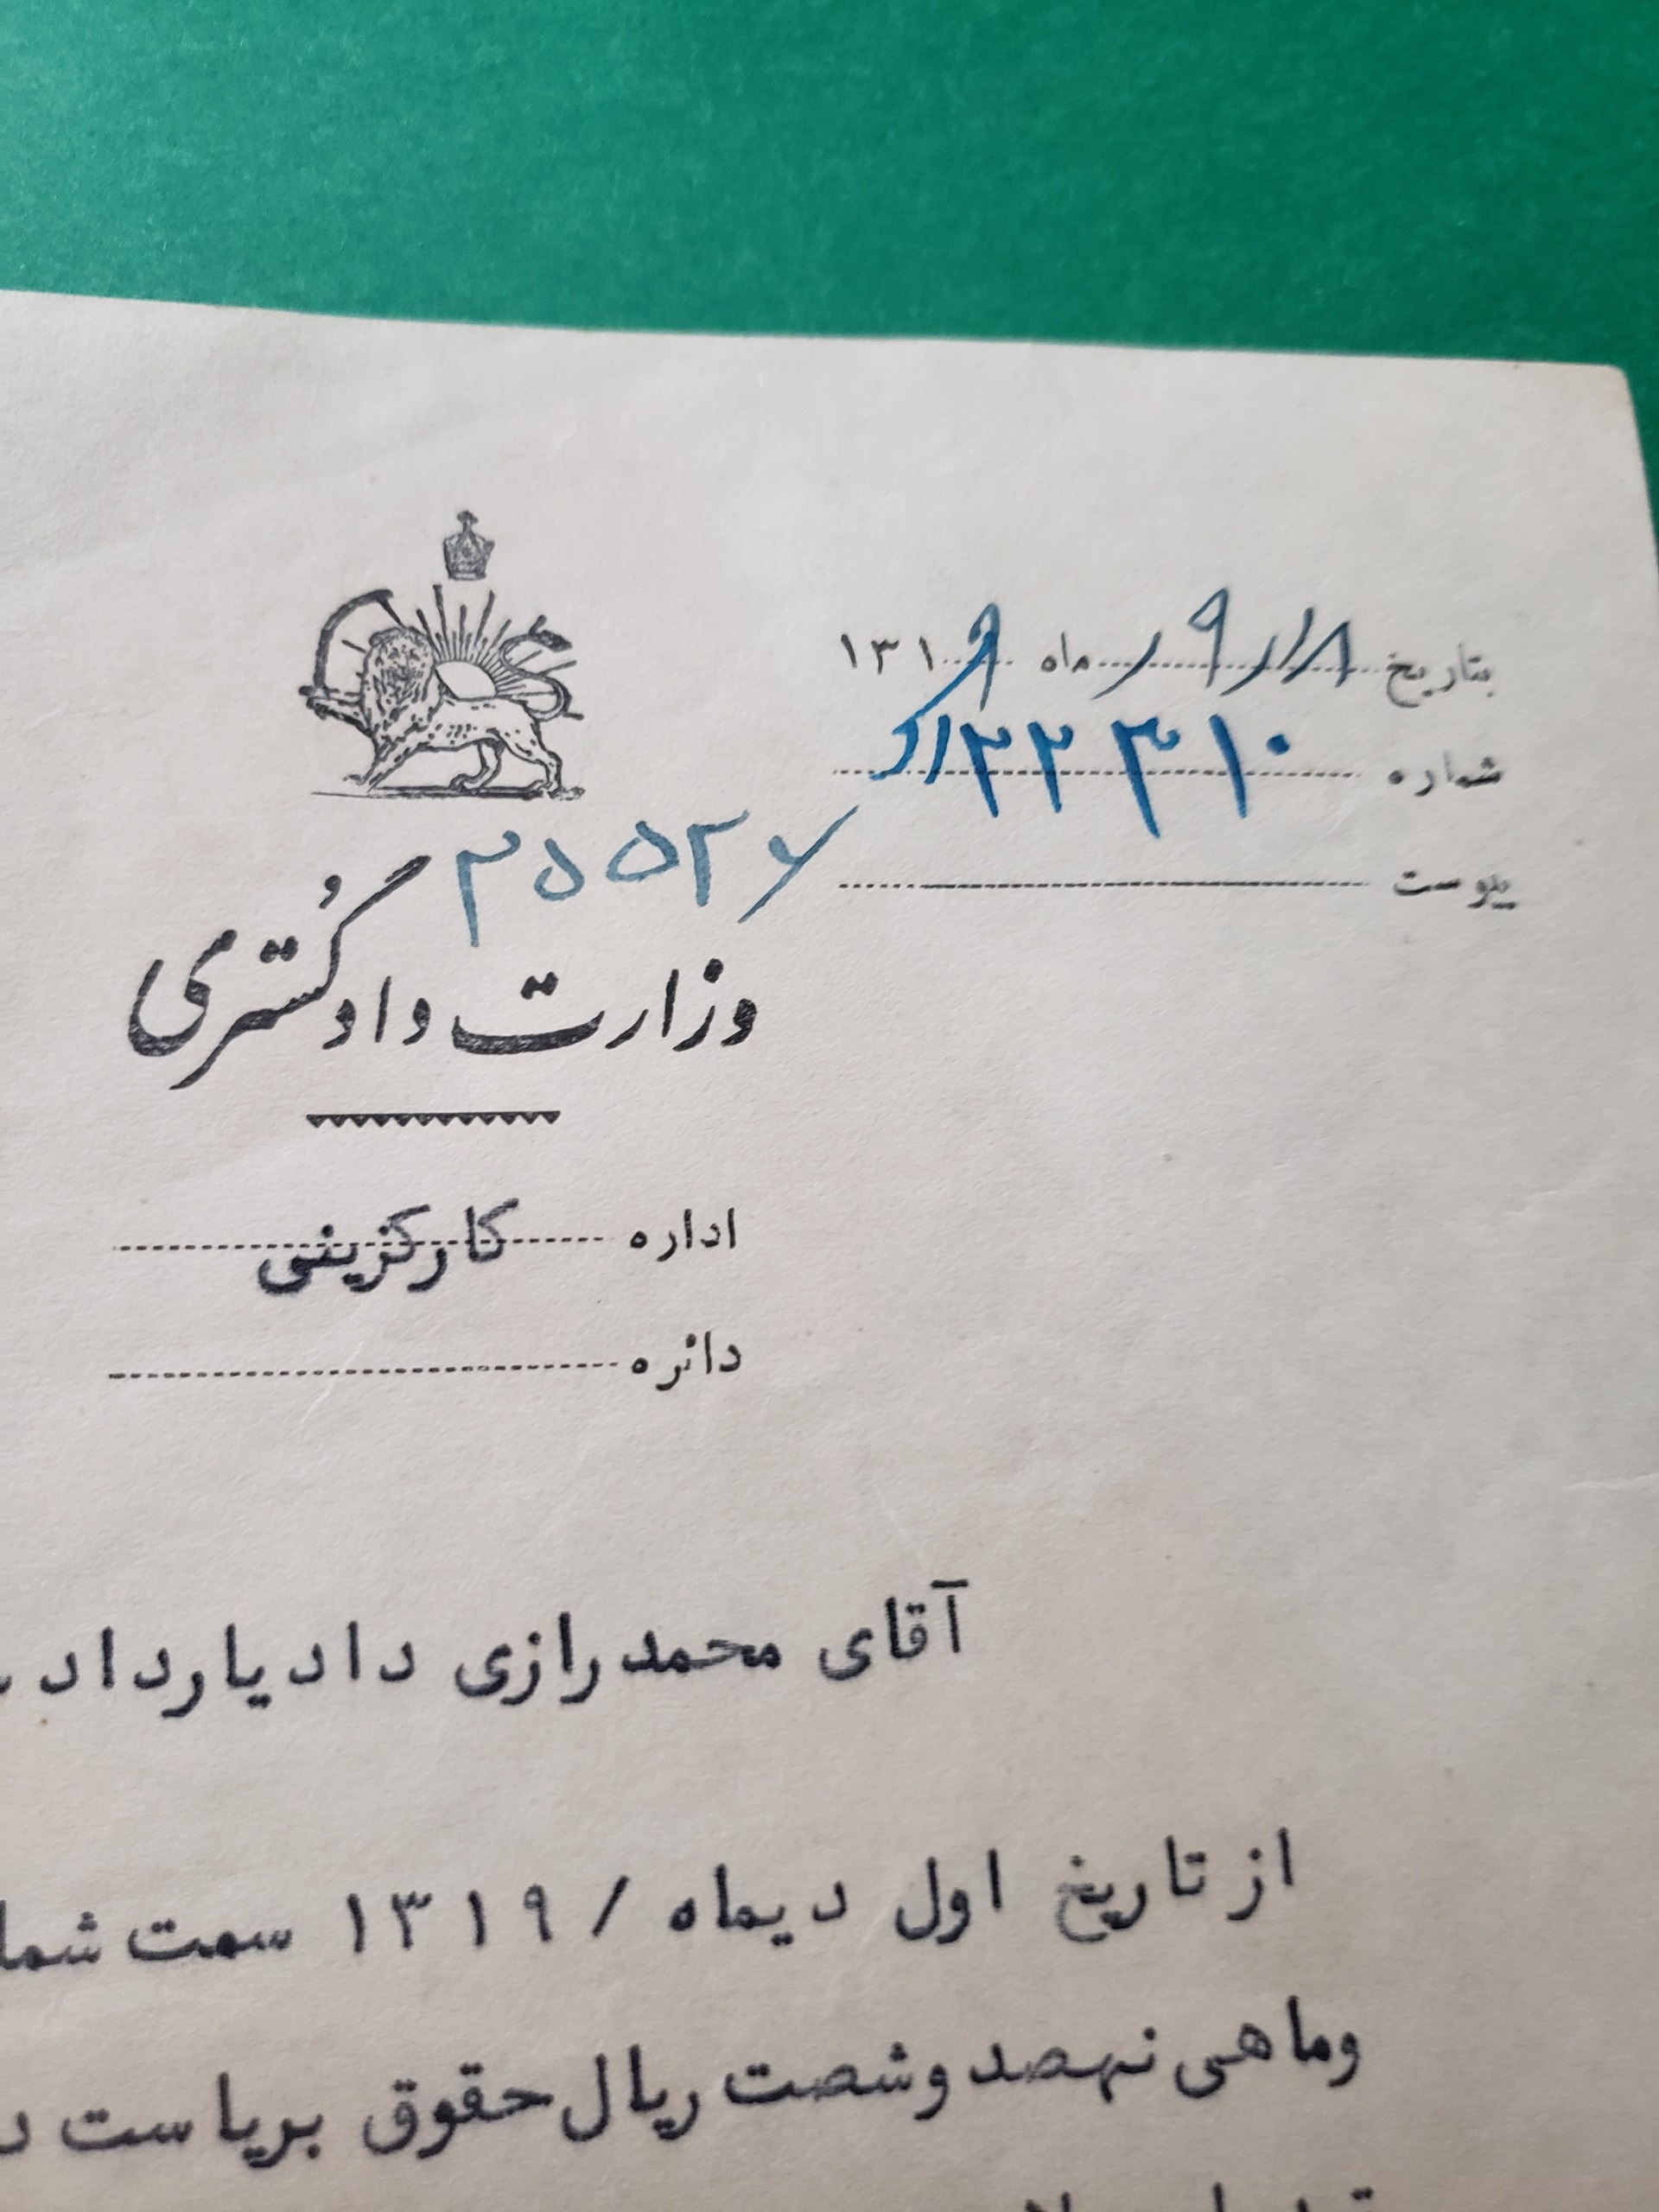 بتاریخ ۱۸ / ۹ / ماه ۱۳۱۹
شماره
پیوست
وزارت دادگستری
اداره کارگزینی
دائره
آقای محمد رازی دادیار
از تاریخ اول دیماه / ۱۳۱۹ سمت شما
وماهی نهصد وشصت ریال حقوق بریاست